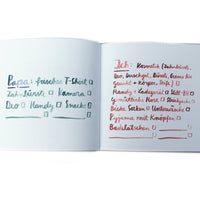 Papa: frisches T-Shirt □
Zahnbürste □ Kamera □
Deo □ Handy □ Snacks □
Ich: Kosmetik (Zahnbürste,
Deo, Duschgel, Bürste, Creme für
Gesicht + Körper, Seife) □
Handy + Ladegerät □ Still-BH □
Gemütliche Hose □ Stilltücher □
Dicke Socken □ Unterwäsche □
Pyjama mit Knöpfen □
Badelatschen □